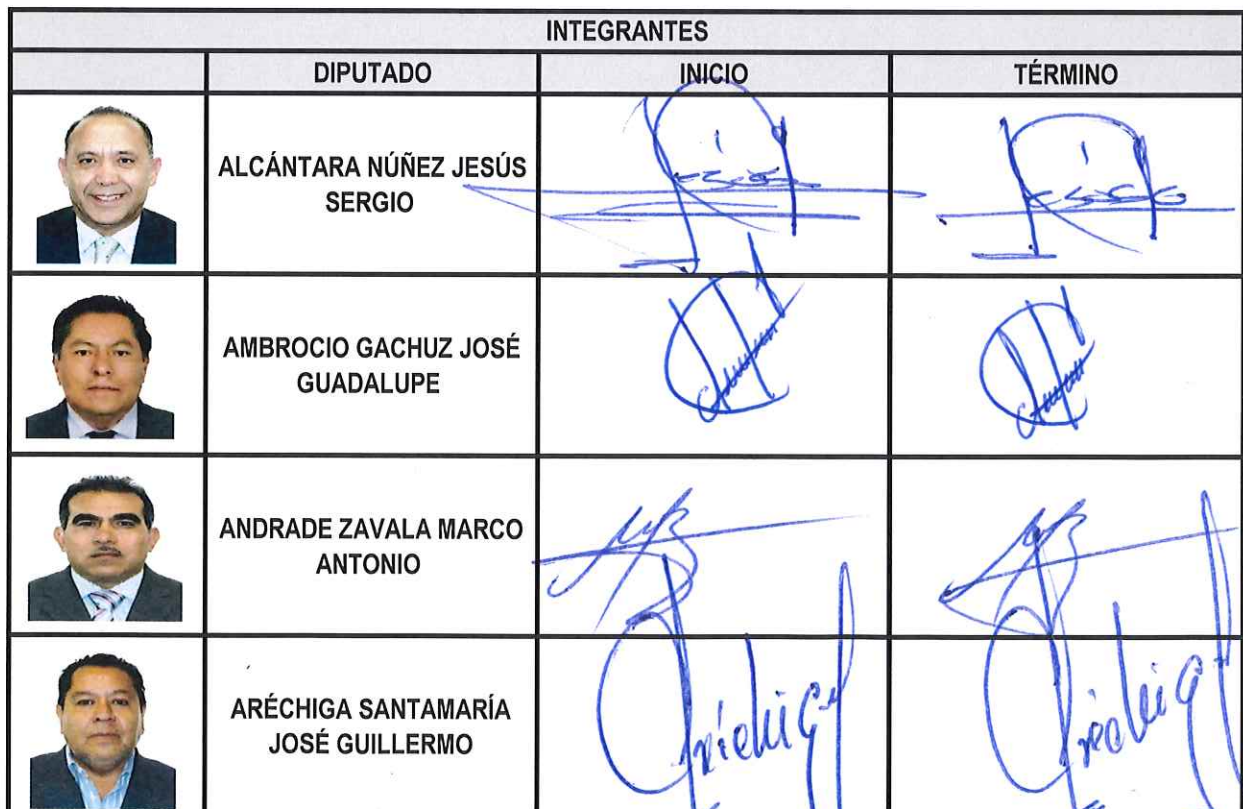 INTEGRANTES
DIPUTADO INICIO TÉRMINO
ALCÁNTARA NÚÑEZ JESÚS
SERGIO
AMBROCIO GACHUZ JOSÉ
GUADALUPE
ANDRADE ZAVALA MARCO
ANTONIO
ARÉCHIGA SANTAMARÍA
JOSÉ GUILLERMO